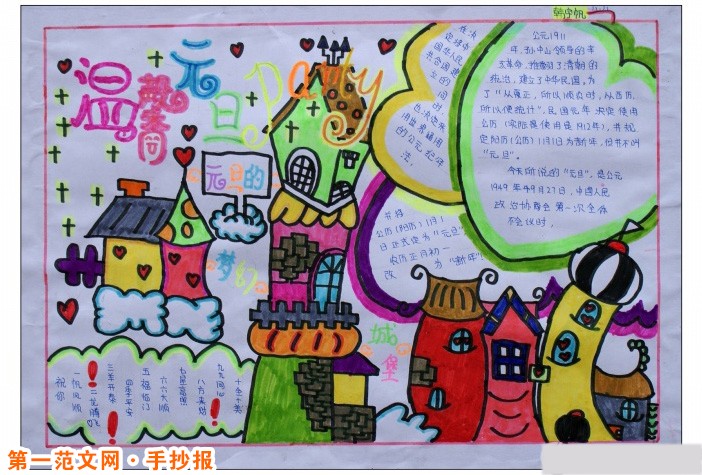 韩宇帆
温馨
元旦Party
元旦的
梦幻
城堡
公元1911
年,孙中山领导的辛
亥革命,推翻了清朝的
统治,建立了中华民国。为
了"从夏正,所以顺农时,从西历,
所以便统计",民国元年决定使用
公历(实际使用是1912年),并规
定阳历(公历)1月1日为"新年",但并不叫
"元旦"。
今天所说的"元旦",是公元
1949年9月27日,中国人民
政治协商会第一次全体
会议时,
在决
定建立
中华人民
共和国
的同时
也决定采
用世界通用
的公元纪年
法,
并将
公历(阳历)1月1
日正式定为"元旦"
农历正月初一
改为"新年"。
祝你
一帆风顺
二龙腾飞
三羊开泰
四季平安
五福临门
六六大顺
七星高照
八方来财
九九同心
十全十美
第一范文网·手抄报